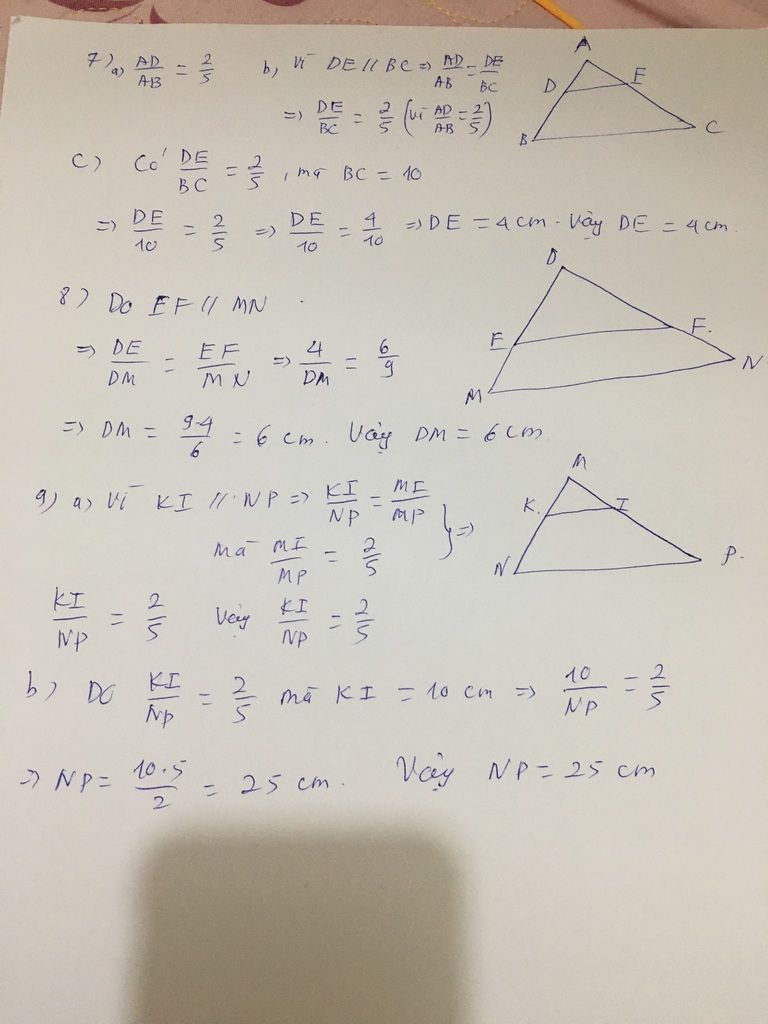 7) a) AD/AB = 2/5 b, Vì DE // BC => AD/AB = DE/BC
=> DE/BC = 2/5 (vì AD/AB = 2/5)
A
D E
B C
c) Có DE/BC = 2/5, mà BC = 10
=> DE/10 = 2/5 => DE/10 = 4/10 => DE = 4 cm. Vậy DE = 4 cm.
8) Do EF // MN
=> DE/DM = EF/MN => 4/DM = 6/9
=> DM = 9.4/6 = 6 cm. Vậy DM = 6 cm.
D
E F.
M N
9) a) Vì KI // NP => KI/NP = MI/MP
mà MI/MP = 2/5 } =>
KI/NP = 2/5 Vậy KI/NP = 2/5
M
K. I
N P.
b) Do KI/NP = 2/5 mà KI = 10 cm => 10/NP = 2/5
=> NP = 10.5/2 = 25 cm. Vậy NP = 25 cm